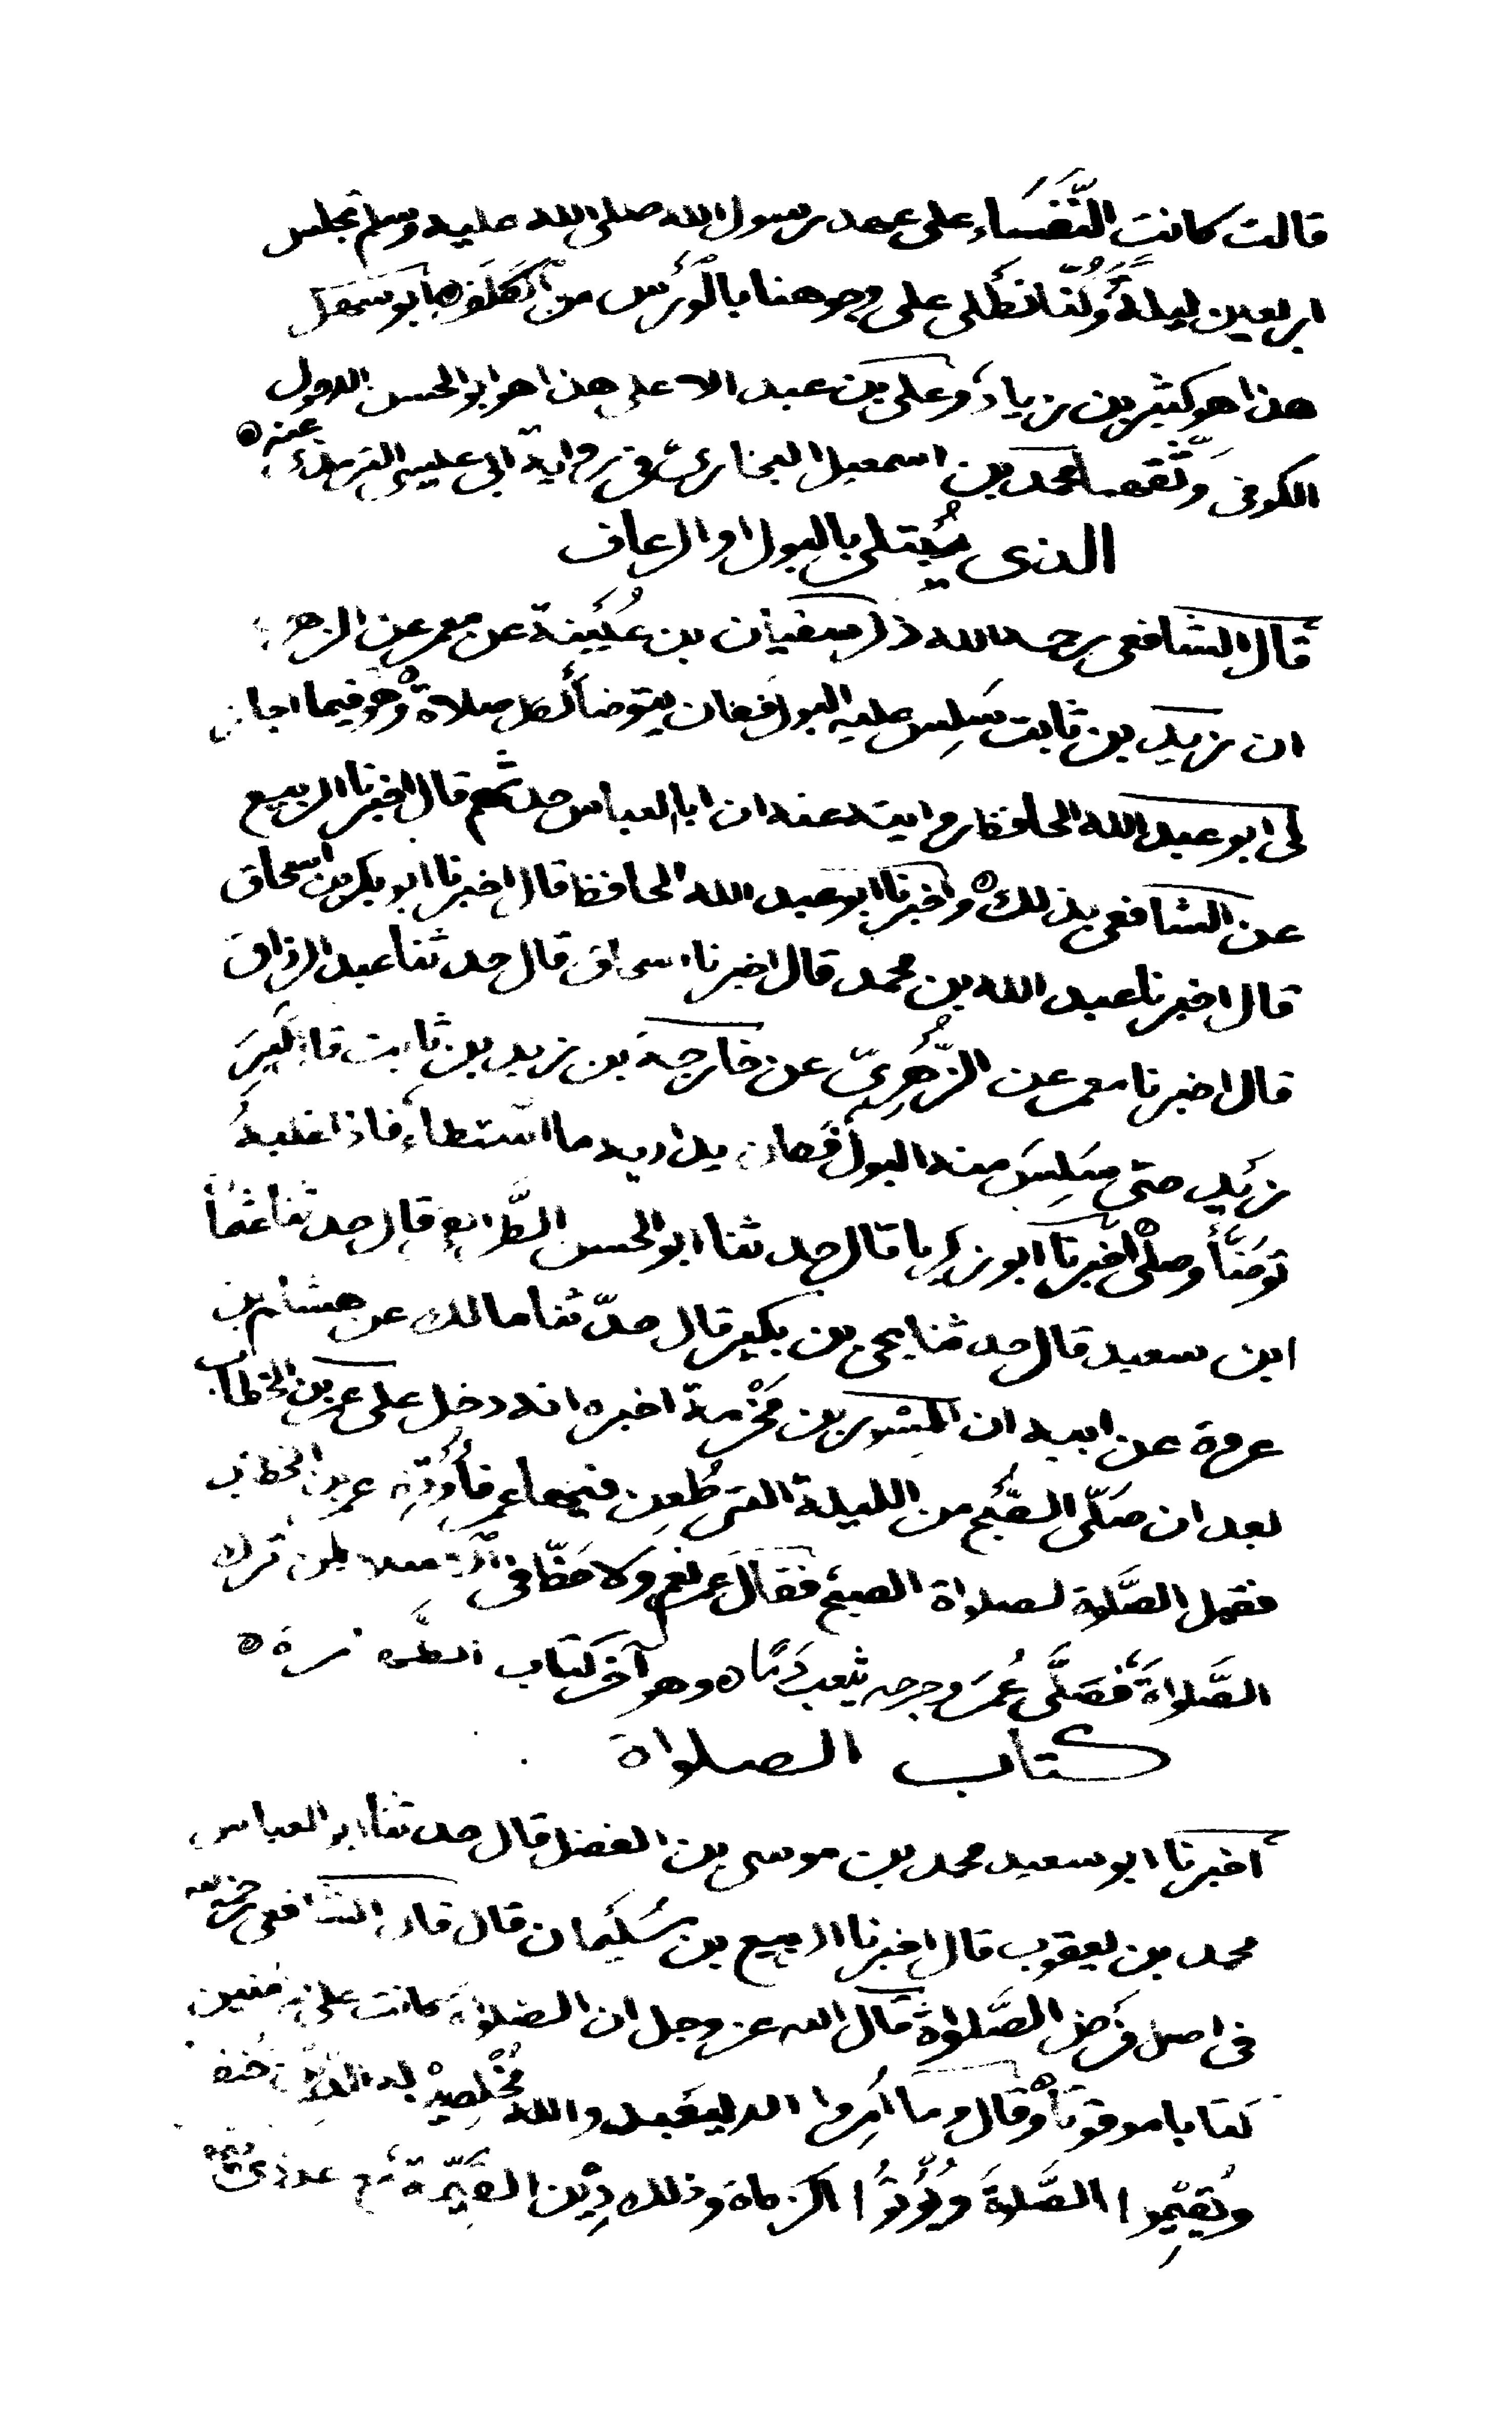 قالت كانت النُّفَسَاء على عهد رسول الله صلى الله عليه وسلم تجلس
اربعين ليلةً وكُنّا نطلى على وجوهنا بالوَرْس من الكَلَف ابو سَهْل
هذا هو كثير بن زياد وعلى بن عبد الاعلى هذا هو ابو الحسن الاحول
الكوفى وَثَّقهما محمد بن اسمعيل البخارى فى رواية ابى عيسى الترمذى عنه
الذى يُبتلى بالبول او الرعاف
قال الشافعى رحمه الله ذكر سفيان بن عُيَيْنة عن معمر عن الزهرى
ان زيد بن ثابت سَلِس عليه البول فكان يتوضأ لكل صلاة وهو فيما اجاز
لى ابو عبد الله الحافظ روايته عنه ان ابا العباس حدثهم قال اخبرنا الربيع
عن الشافعى بذلك واخبرنا ابو عبد الله الحافظ قال اخبرنا ابو بكر بن اسحاق
قال اخبرنا عبد الله بن محمد قال اخبرنا اسحاق قال حدثنا عبد الرزاق
قال اخبرنا معمر عن الزُّهْرِىّ عن خارجة بن زيد بن ثابت قال كَبِرَ
زَيْد حتى سَلِسَ منه البول فكان يداريه ما استطاع فاذا غلبهُ
توضّأ وصلى اخبرنا ابو زكريا قال حدثنا ابو الحسن الطَّرائفى قال حدثنا عثمان
ابن سعيد قال حدثنا يحيى بن بكير قال حدّثنا مالك عن هشام بن
عروة عن ابيه ان المِسْور بن مَخْرمة اخبره انه دخل على عمر بن الخطاب
بعد ان صَلّى الصُّبْح من الليلة التى طُعِن فيها عمر فأُوذِن عمر بن الخطاب
فقيل الصَّلوة لصلواة الصبح فقال عمر نعم ولا حَظّ فى الاسلام لمن ترك
الصَّلواة فَصَلَّى عُمَر وجرحه يثعب دَمًا وهو آخر كتاب الطهارة
كتاب الصلواة
اخبرنا ابو سعيد محمد بن موسى بن الفضل قال حدثنا ابو العباس
محمد بن يعقوب قال اخبرنا الربيع بن سُلَيْمان قال قال الشافعى رحمه الله
فى اصل فَرْض الصَّلواة قال الله عز وجل ان الصلواة كانت على المؤمنين
كتابا موقوتا وقال وما اُمِروا الا ليعبدوا الله مُخْلِصِيْن له الدِّين حُنفا
ويُقِيْمِوا الصَّلوةَ ويُؤْتُوا الزكاة وذلك دِيْن القَيِّمة مع عدد